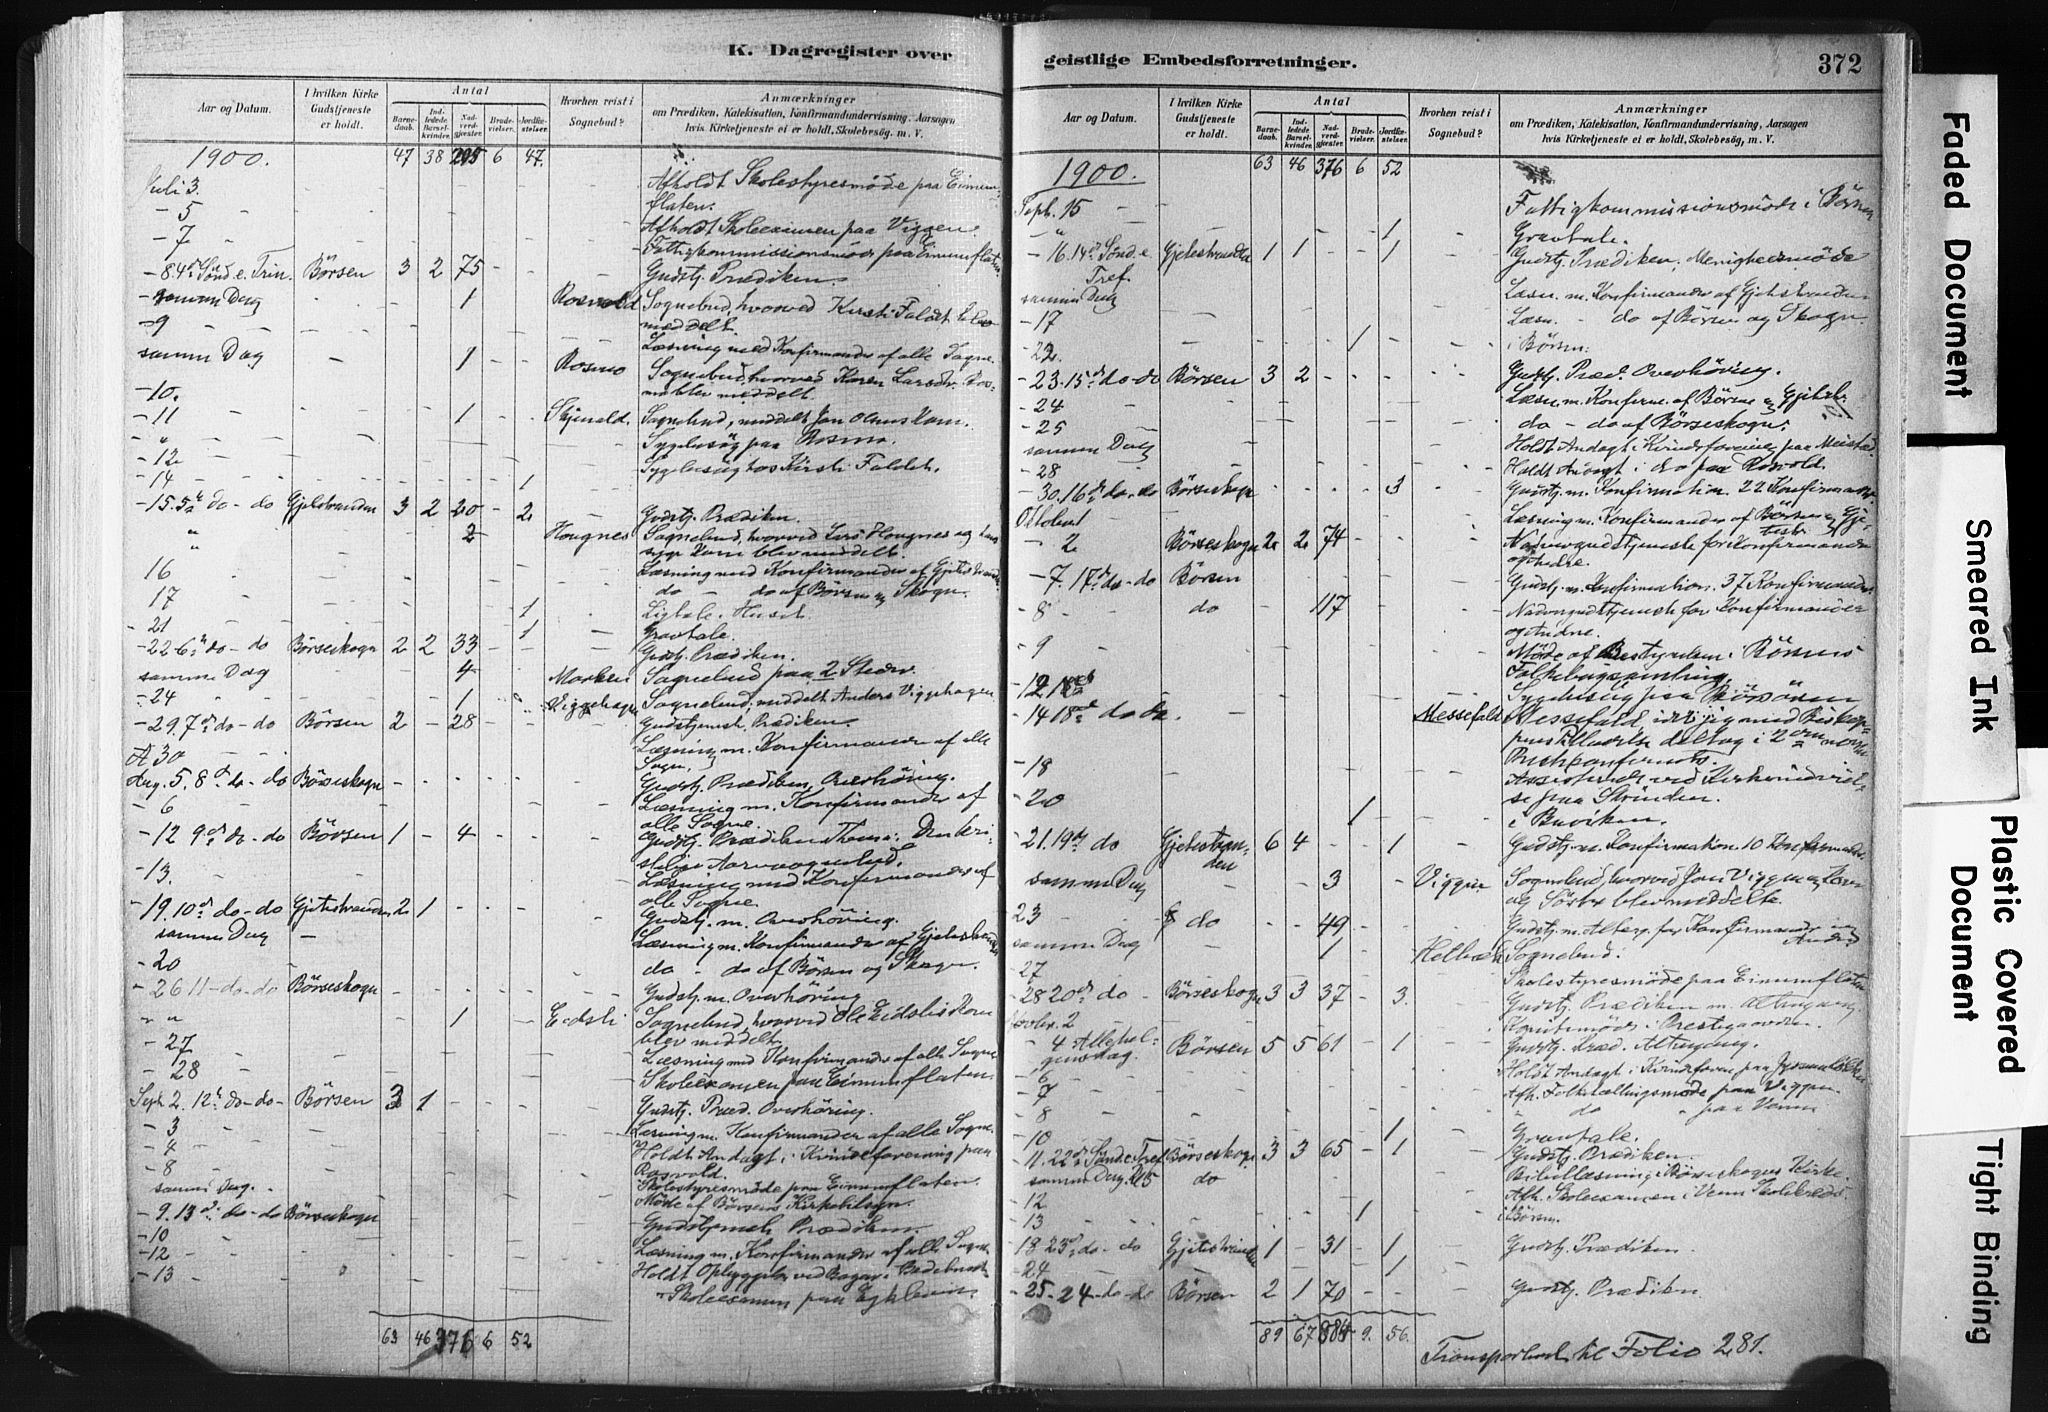 K. Dagregister over
Aar og Datum.
I hvilken Kirke Gudstjeneste er holdt.
Antal
Barnedaab.
Indledede Barselkvinder.
Nadverdgjester.
Brudevielser.
Jordfæstelser.
Hvorhen reist i Sognebud?
Anmærkninger
om Prædiken, Katekisation, Konfirmandundervisning, Aarsagen
hvis Kirketjeneste ei er holdt, Skolebesøg, m. V.
1900. 47 38 295 6 47.
Juli 3. Afholdt Skolestyresmøde paa Eimunflaten.
- 5 Afholdt Skoleexamen paa Viggen.
- 7 Fattigkommissionsmøde paa Eimunflaten
- 8 4de Sønd e. Trin. Børsen 3 2 75 Gudstj. Prædiken.
samme Dag 1 Rosvold Sognebud, hvorved Kirsti Faldet blev
meddelt.
- 9 Læsning med Konfirmander af alle Sogne.
samme Dag 1 Rosmo Sognebud, hvorved Karen Larsdr. Rosmo
blev meddelt.
- 10.
- 11 1 Skjevald. Sognebud, meddelt Jon
Sygebesøg paa Rosmo.
- 12 Sygebesøg hos Kirsti Faldet.
- 14 1
- 15. 5te do - do Gjetstranden 3 2 20 - 2 Gudstj. Prædiken.
" 2 Hougnes Sognebud, hvorved Lars Hougnes og hans
syge Kone blev meddelt.
16 Læsning med Konfirmander af Gjetstranden
17 do - do af Børsen og Skogn.
1 Ligtale. Huset.
- 21 1 Gravtale.
- 22 6te do - do Børseskogn 2 2 33 Gudstj. Prædiken.
samme Dag 4 Marken Sognebud paa 2 Steder.
- 24 1 Viggehagen Sognebud, meddelt Anders Viggehagen
- 29. 7de do - do Børsen 2 - 28 Gudstjeneste, Prædiken.
30 Læsning m. Konfirmander af alle
Sogn.
Aug. 5. 8de do - do Børseskogn Gudstj. Prædiken, Overhøring.
- 6 Læsning m. Konfirmander af
alle Sogne.
- 12 9de do - do Børsen 1 - 4 Gudstj. Prædiken
- 13. Læsning med Konfirmander af
alle Sogne.
- 19. 10de do - do Gjetstranden 2 1 Gudstj. m. Overhøring.
samme Dag Læsning m. Konfirmander af Gjetstranden
- 20 do - do af Børsen og Skogn.
- 26 11 - do - do Børseskogn Gudstj. m. Overhøring
" " 1 Eidsli Sognebud, hvorved Ole Eidslis Kone
blev meddelt.
- 27 Læsning med Konfirmander af alle Sogne
- 28 Skoleexamen paa Eimunflaten.
Sept. 2. 12te do - do - Børsen 3 1 Gudstj. Præd. Overhøring.
- 3 Læsning m. Konfirmander af alle Sogne.
- 4 Holdt Andagt i Kvindeforening paa
Rosvold.
- 8 Skolestyresmøde paa Eimunflaten.
samme Dag. Møde af Børsens Kirketilsyn.
- 9. 13de do - do Børseskogn Gudstjeneste Prædiken.
- 10 Læsning m. Konfirmander af alle Sogne.
- 12 Holdt Opbyggelse ved
- 13 Skoleexamen paa
63 46 376 6 52
geistlige Embedsforretninger. 372
Aar og Datum.
I hvilken Kirke Gudstjeneste er holdt.
Antal
Barnedaab.
Indledede Barselkvinder.
Nadverdgjester.
Brudevielser.
Jordfæstelser.
Hvorhen reist i Sognebud?
Anmærkninger
om Prædiken, Katekisation, Konfirmandundervisning, Aarsagen
hvis Kirketjeneste ei er holdt, Skolebesøg, m. V.
1900. 63 46 376 6 52
Sept. 15 Fattigkommissionsmøde i Børsen
" 1 Gravtale.
- 16. 14de Sønd. e. Gjetstranden 1 1 - - 1 Gudstj. Prædiken, Menighedsmøde
Tref.
samme Dag Læsn. m. Konfirmander af Gjetstranden
- 17 Læsn. - do af Børsen og Skogn.
- 22. 1 i Børsen.
- 23. 15de do - do Børsen 3 2 Gudstj. Præd. Overhøring.
- 24 Læsn. m. Konfirm. af Børsen og Gjetstr.
- 25 do - do af Børseskogn.
samme Dag Holdt Andagt i Kvindeforening paa Meistad.
- 28 Holdt Andagt i do paa Rosvold.
- 30. 16de do - do Børseskogn 3 Gudstj. m. Konfirmation. 22 Konfirmander.
Oktober Læsning m. Konfirmander af Børsen og Gjetestr.
- 2 Børseskogn 2 2 74 Nadvergudstjeneste for Konfirmander
og Andre.
- 7. 17de do - do Børsen Gudstj. m. Konfirmation. 37 Konfirmander
- 8 do 117 Nadvergudstjeneste for Konfirmander
og Andre.
- 9 Møde af Bestyrelsen i Børsens
Folkebogsamling.
- 12 Sygebesøg paa Børsøren
- 14 18de do do. Messefald Messefald,
- 18 Assisterende ved Kirkeindvielse
paa Strinden.
- 20 1 i Buviken.
- 21. 19de do Gjetestranden 6 4 - - 1 Gudstj. m. Konfirmation. 10 Konfirmander.
samme Dag 3 Viggen Sognebud, hvorved Jon Viggen
og Sørbø blev meddelte.
23 do 49 Gudstj. m. Alterg. for Konfirmander og
Andre
samme Dag 1 Helbæk Sognebud.
27 Skolestyresmøde paa Eimunflaten
- 28 20de do - Børseskogn 3 3 37 - 3. Gudstj. Prædiken m. Altergang
Novbr. 2 Komitemøde i Prestegaarden.
- 4 Allehelgensdag. Børsen 5 5 61 - 1 Gudstj. Præd. Altergang.
- 6 Holdt Andagt i Kvindeforen. paa
- 7 Afh. Folketællingsmøde paa Viggen.
- 8 " do " paa Venn
- 10 1 Gravtale.
- 11. 22de Sønd e. Tref. Børseskogn 3 3 65 - 1 Gudstj. Prædiken.
samme Dag. do Bibellæsning i Børseskogns Kirke
12 Afh. Skoleexamen i Venn Skolekreds.
- 13 1 i Børsen.
18 23de do - do Gjetestranden 1 - 31 - 1 Gudstj. Prædiken.
- 24 1
- 25 - 24 - do - do Børsen 2 1 70 Gudstj. Prædiken.
89 67 884 9. 56.
Transporteret til Folio 281.
Faded Document
Smeared Ink
Plastic Covered Document
Tight Binding